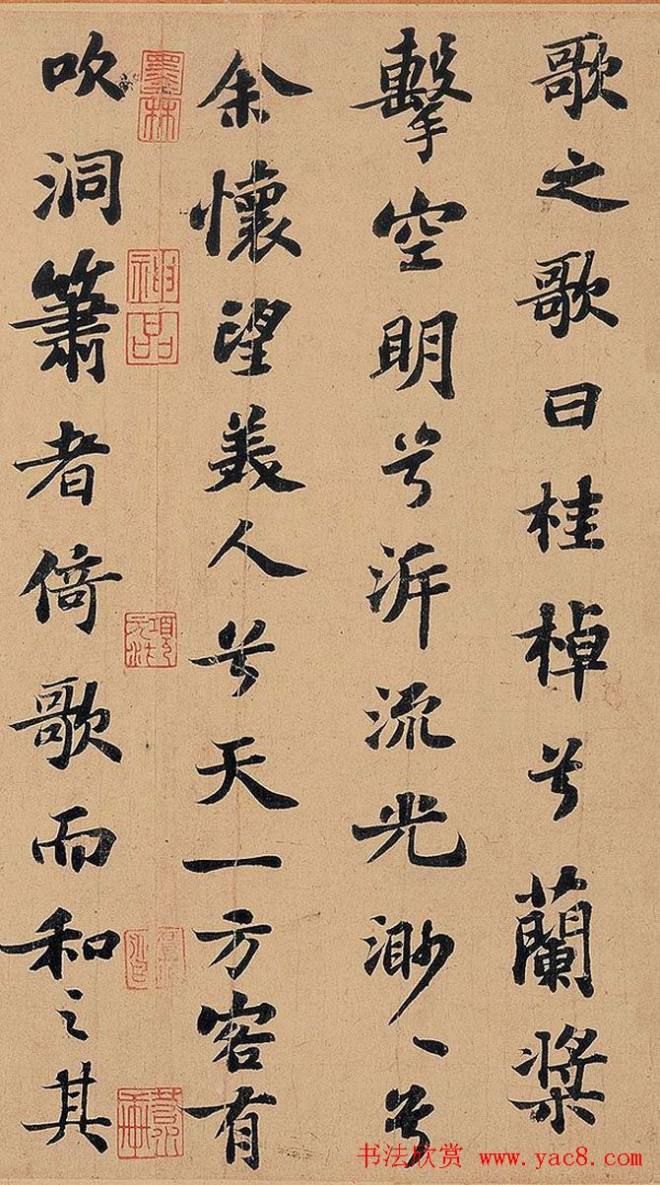 歌之歌曰桂棹兮蘭槳
擊空明兮泝流光渺〻兮
余懷望美人兮天一方客有
吹洞簫者倚歌而和之其
墨林
神品
項元汴
书法欣赏 www.yac8.com